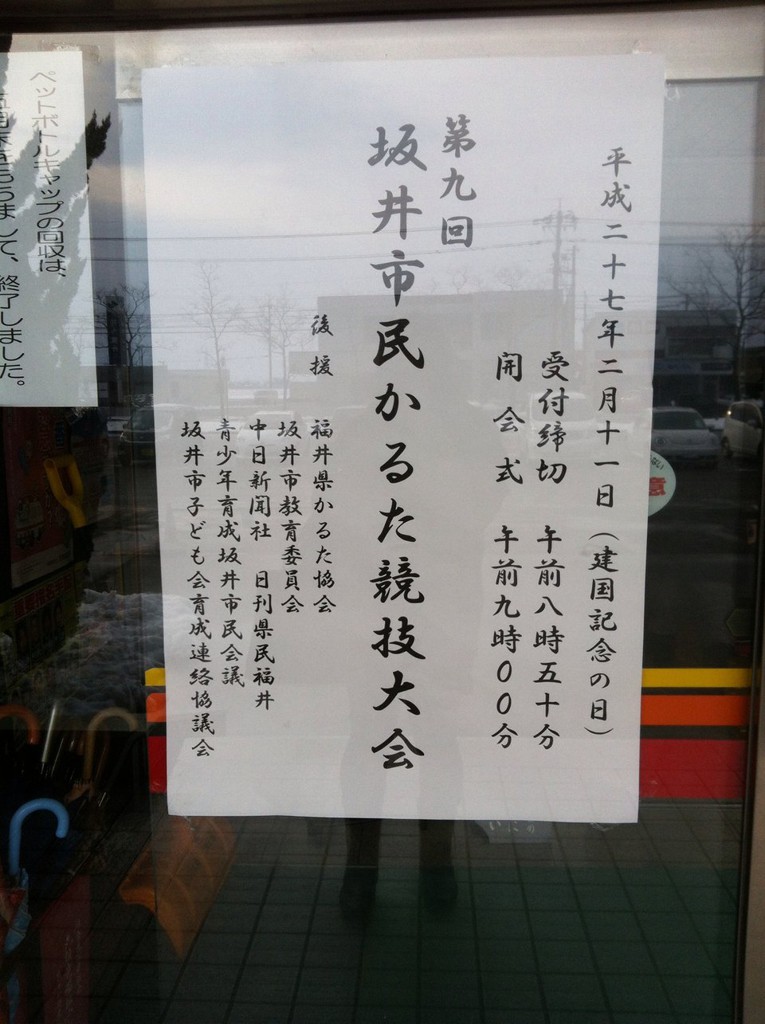 平成二十七年二月十一日（建国記念の日）
受付締切 午前八時五十分
開会式 午前九時００分
第九回
坂井市民かるた競技大会
後援 福井県かるた協会
坂井市教育委員会
中日新聞社 日刊県民福井
青少年育成坂井市民会議
坂井市子ども会育成連絡協議会
ペットボトルキャップの回収は、
もちまして、終了しました。